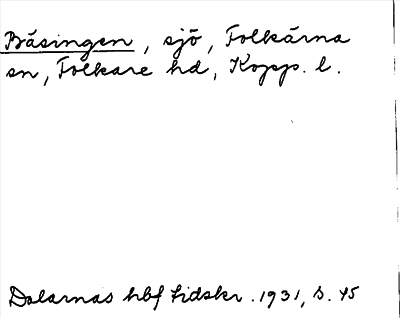 Båsingen, sjö, Folkärna
sn, Folkare hd, Kopp. l.
Dalarnas hbf tidskr. 1931, s. 45